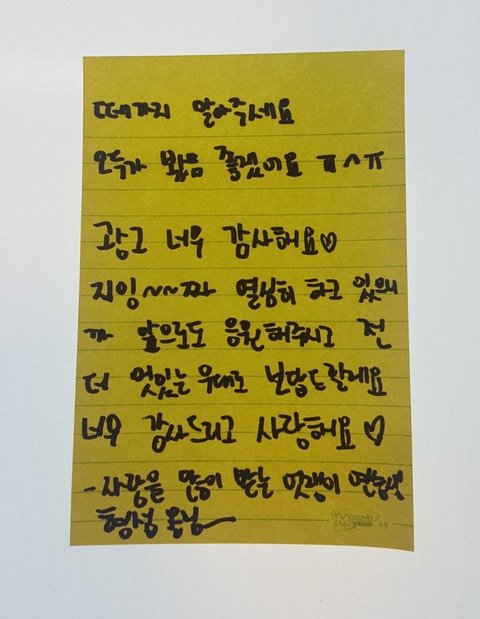 떼가지 말아주세요
오두가 봤음 좋겠어요 ㅠㅅㅠ
광고 너무 감사해요♡
지잉~~짜 열심히 하고 있으니
까 앞으로도 응원해주시고 전
더 멋있는 무대로 보답드릴게요
너무 감사드리고 사랑해요 ♡
- 사랑을 많이 받는 멋쟁이
형성